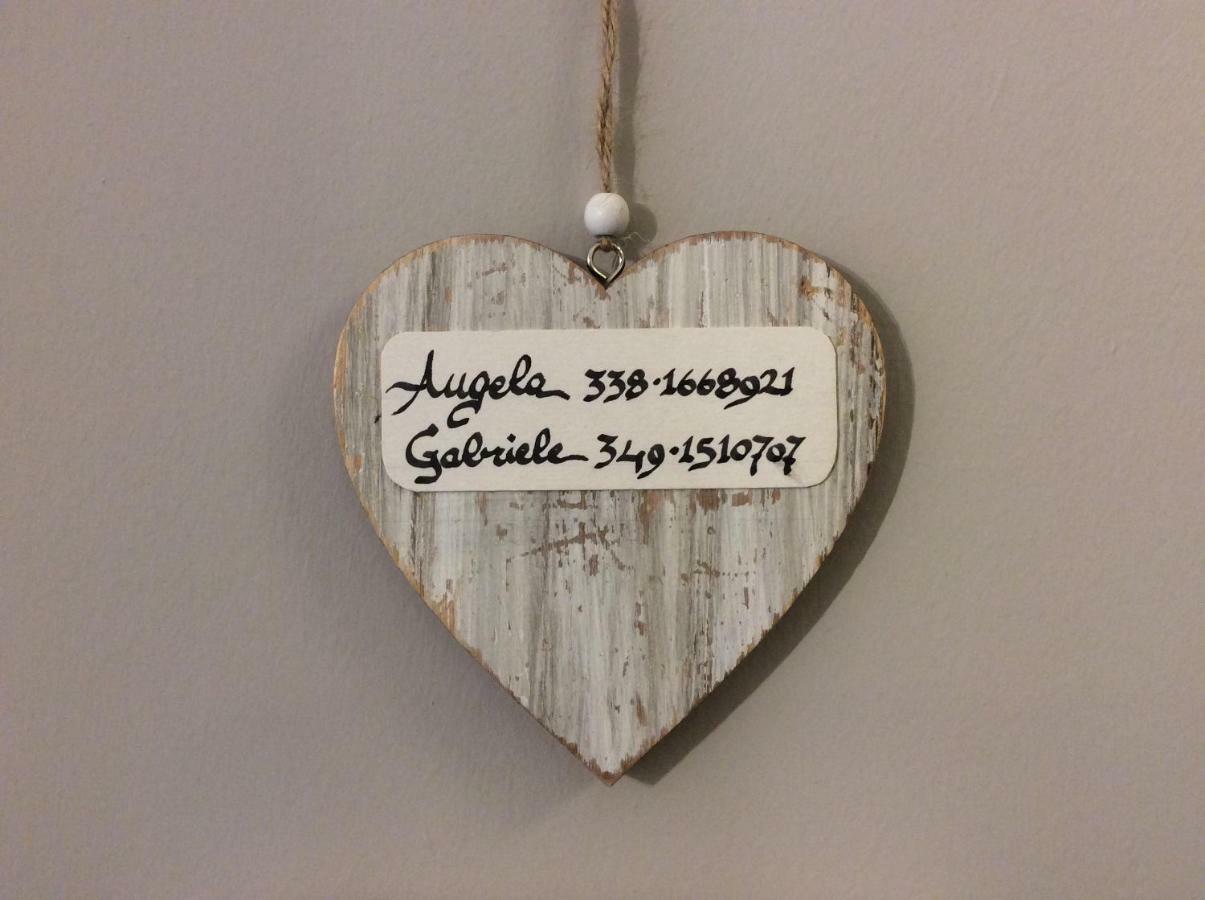 Angela 338·1668921
Gabriele 349·1510707